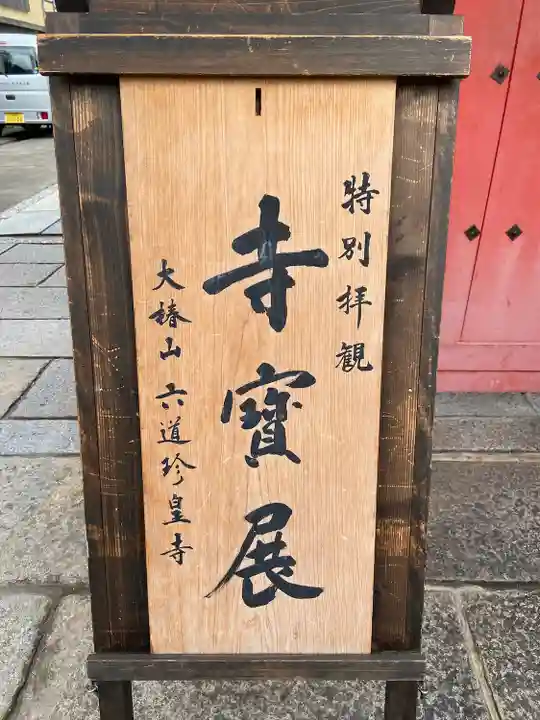 特別拝観
寺寶展
大椿山 六道珍皇寺